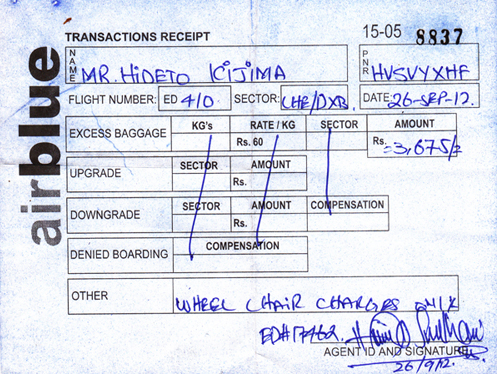 airblue
TRANSACTIONS RECEIPT
15-05 8837
NAME MR. HIDETO KIJIMA
PNR HVSVYXHF
FLIGHT NUMBER: ED 410 SECTOR: LHE/DXB. DATE: 26-SEP-12.
EXCESS BAGGAGE KG's RATE / KG SECTOR AMOUNT
Rs. 60 Rs. =3,675/=
UPGRADE SECTOR AMOUNT
Rs.
DOWNGRADE SECTOR AMOUNT COMPENSATION
Rs.
DENIED BOARDING COMPENSATION
OTHER
WHEEL CHAIR CHARGES
ED#17462.
AGENT ID AND SIGNATURE
26/9/12.